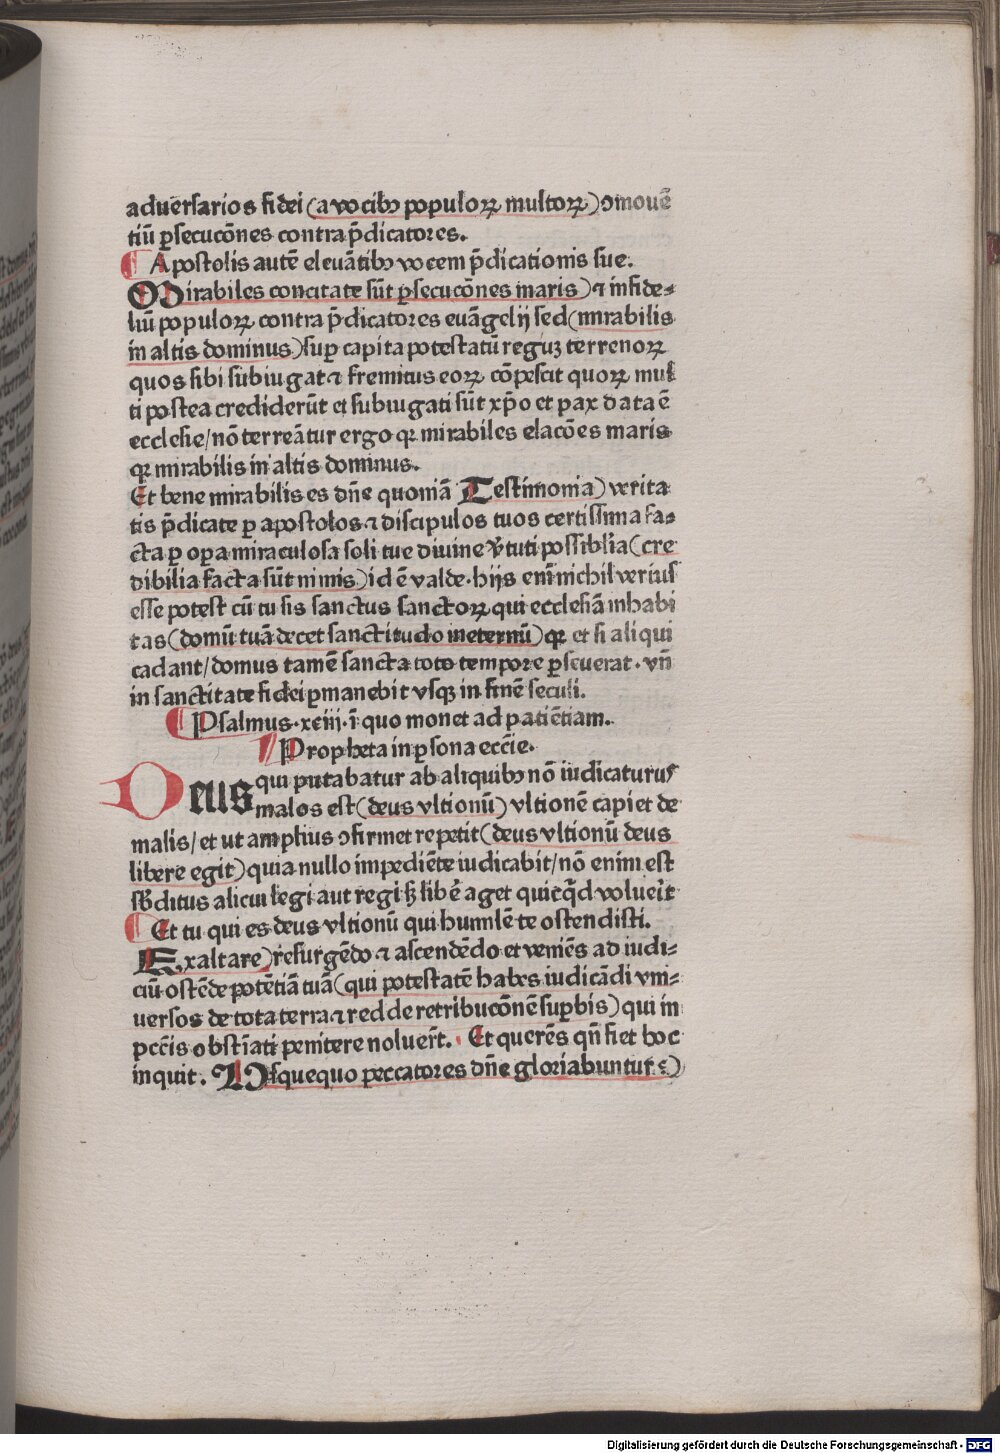 aduersarios fidei (a vocibꝰ populoꝝ multoꝝ) ↄmouē
tiū ꝑsecucōnes contra p̄dicatores.
Apostolis autē eleuātibꝰ vocem p̄dicationis sue.
Mirabiles concitate sūt ꝑsecucōnes maris) ⁊ infide⸗
liū populoꝝ contra p̄dicatores euāgelij sed (mirabilis
in altis dominus) suꝑ capita potestatū reguʒ terrenoꝝ
quos sibi subiugat ⁊ fremitus eoꝝ cōpescit quoꝝ mul
ti postea crediderūt et subiugati sūt xp̄o et pax data ē
ecclesie/ nō terreātur ergo qꝛ mirabiles elacōes maris
qꝛ mirabilis in altis dominus.
Et bene mirabilis es dn̄e quoniā Testimonia) verita
tis p̄dicate ꝑ apostolos ⁊ discipulos tuos certissima fa⸗
cta ꝑ oꝑa miraculosa soli tue diuine v̄tuti possiblia (cre
dibilia facta sūt nimis) id ē valde. hijs eni nichil verius
esse potest cū tu sis sanctus sanctoꝝ qui ecclesiā inhabi
tas (domū tuā decet sanctitudo in eternū) qꝛ et si aliqui
cadant/ domus tamē sancta toto tempore ꝑseuerat. vn̄
in sanctitate fidei ꝑmanebit vsqꝫ in finē seculi.
Psalmus. xciii. ī quo monet ad patiētiam.
Propheta in ꝑsona ecc̄ie.
Deus qui putabatur ab aliquibꝰ nō iudicaturus
malos est (deus vltionū) vltionē capiet de
malis/ et ut amplius ↄfirmet repetit (deus vltionū deus
libere egit) quia nullo impediēte iudicabit/ nō enim est
sb̄ditus alicui legi aut regi sꝫ libē aget quicq̄d voluerit
Et tu qui es deus vltionū qui humilē te ostendisti.
Exaltare) resurgēdo ⁊ ascendēdo et veniēs ad iudi⸗
ciū ostēde potētiā tuā (qui potestatē habes iudicādi vni⸗
uersos de tota terra ⁊ redde retribucōnē suꝑbis) qui in
pcc̄is obstīati penitere noluer̄t. Et querēs qn̄ fiet hoc
inquit. Vsquequo peccatores dn̄e gloriabuntur
Digitalisierung gefördert durch die Deutsche Forschungsgemeinschaft - DFG